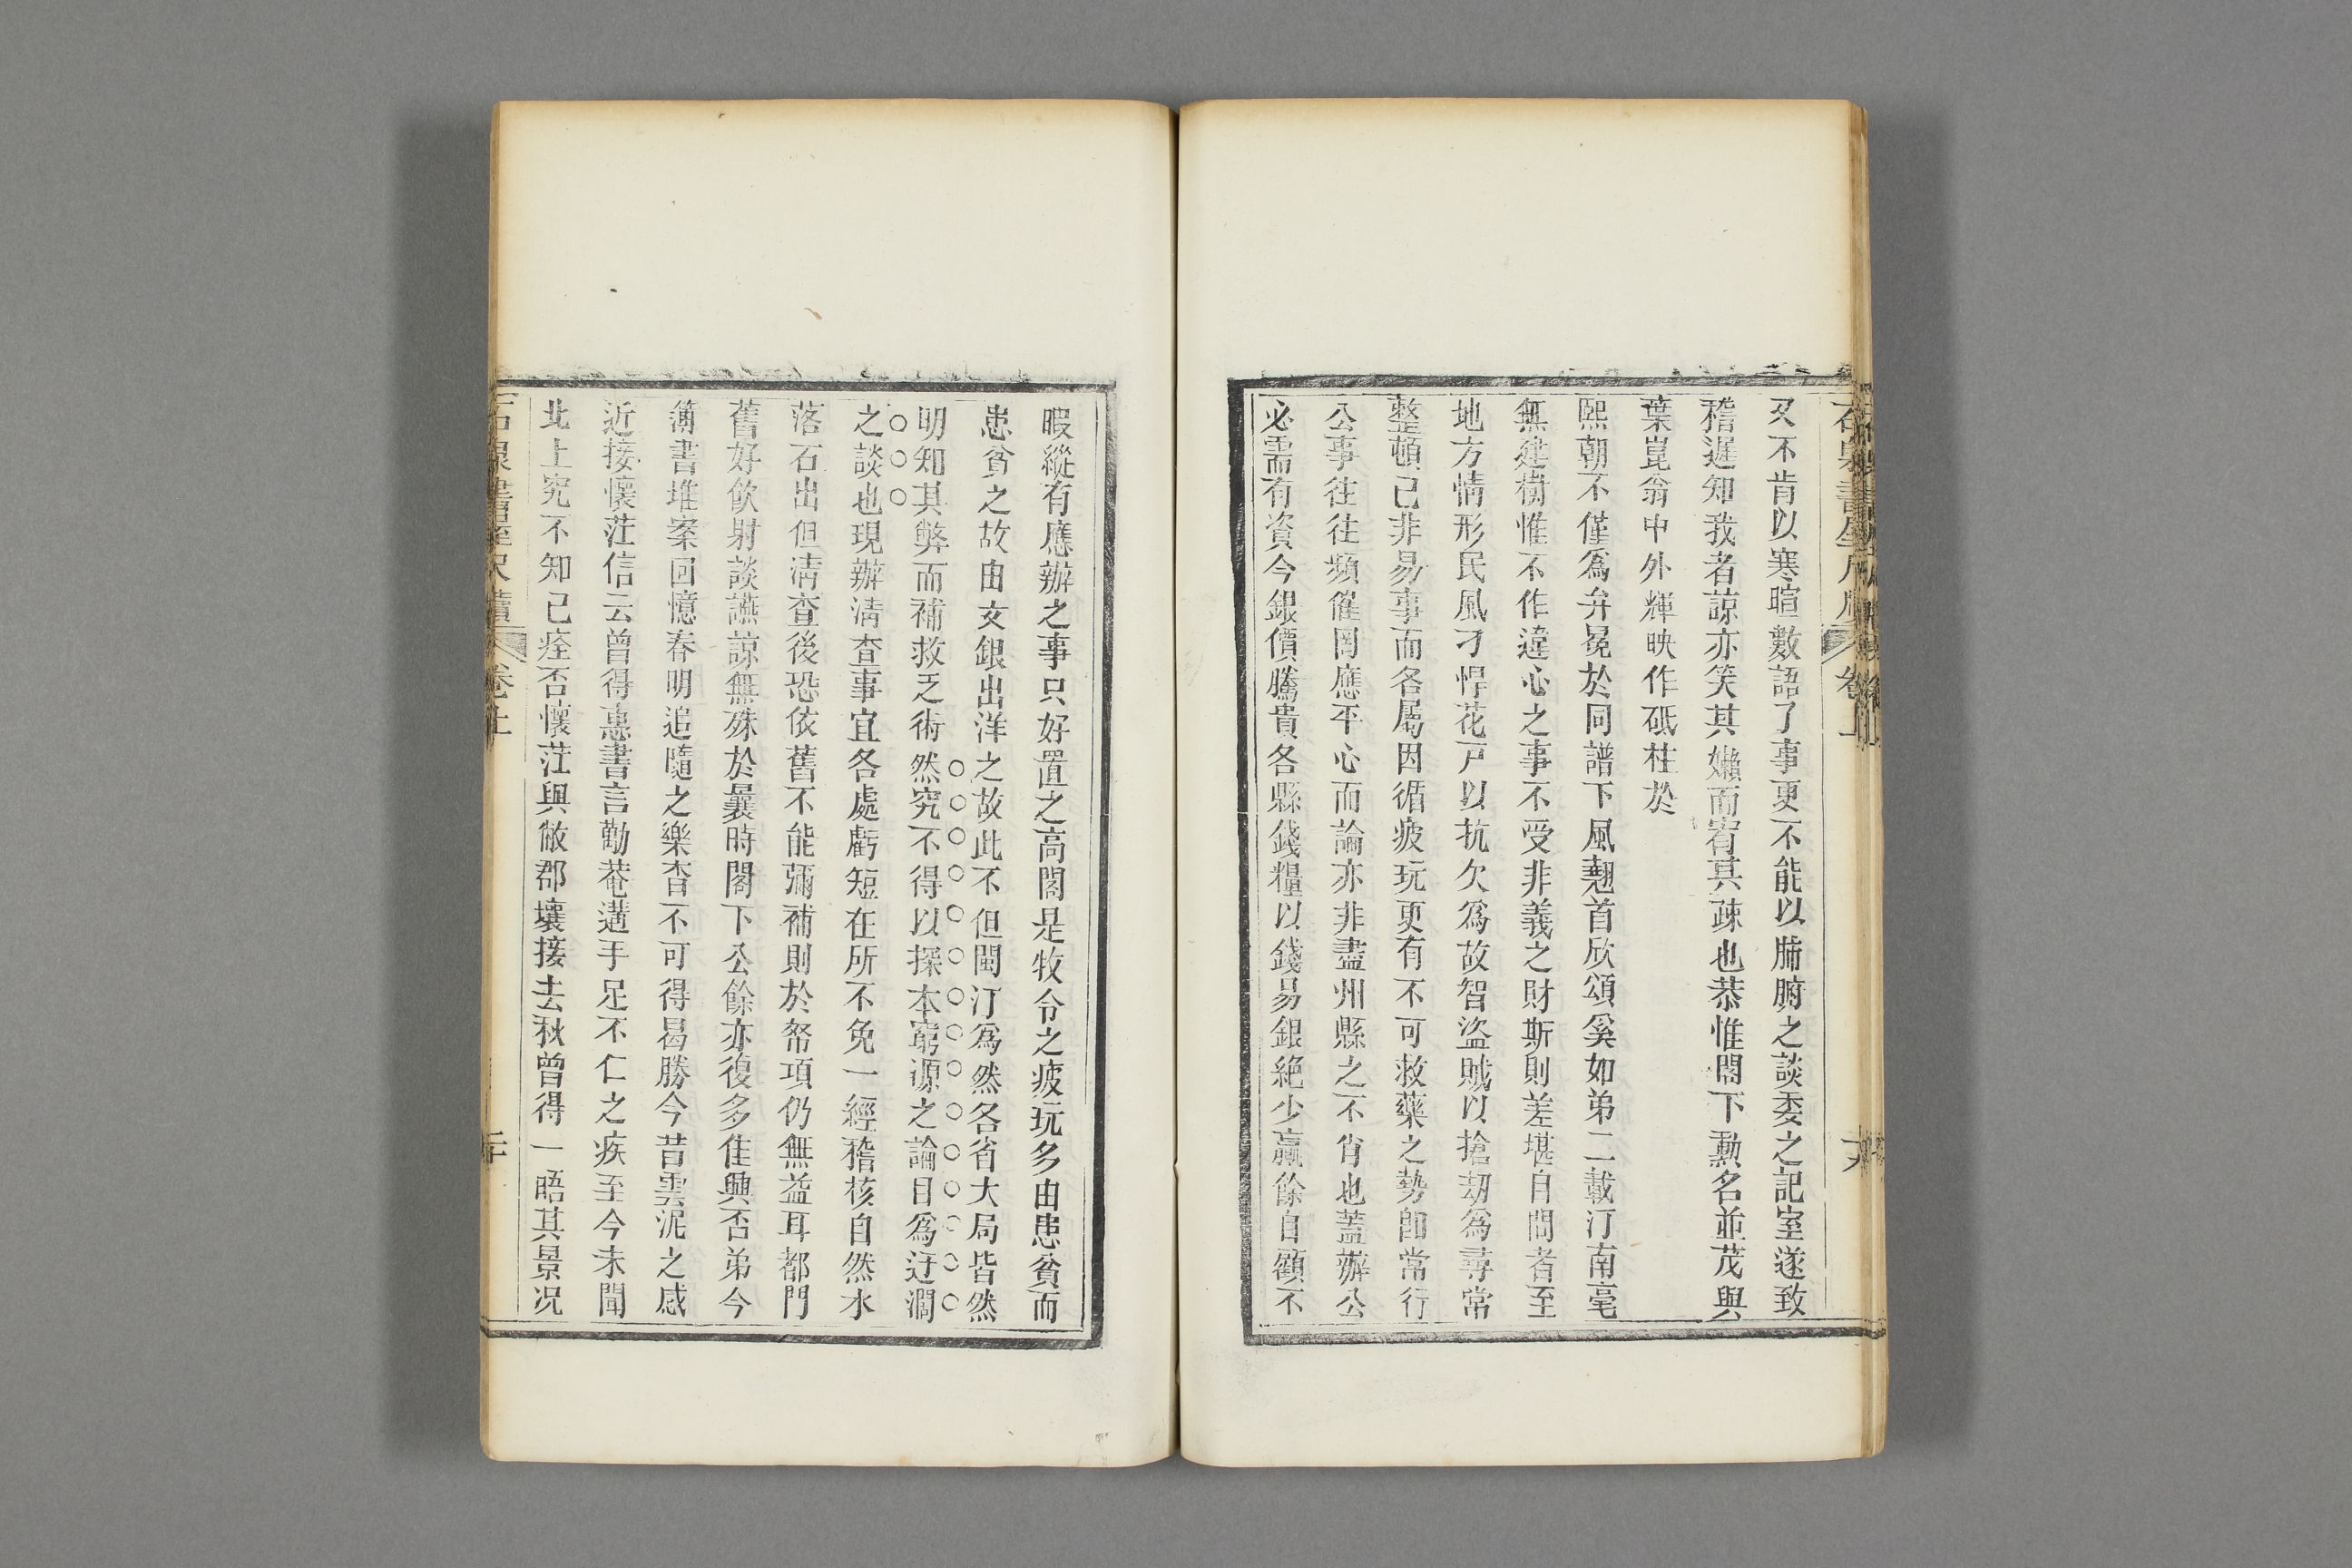 又不肯以寒暄數語了事更不能以肺腑之談委之記室遂致
稽遲知我者諒亦笑其嬾而宥其疎也恭惟閣下勳名並茂與
葉崑翁中外輝映作砥柱於
熙朝不僅爲弁冕於同譜下風翹首欣頌奚如弟二載汀南毫
無建樹惟不作違心之事不受非義之財斯則差堪自問者至
地方情形民風刁悍花戸以抗欠爲故智盜賊以搶刼爲尋常
整頓已非易事而各屬因循疲玩更有不可救藥之勢卽常行
公事往往頻催罔應平心而論亦非盡州縣之不肖也蓋辦公
必需有資今銀價騰貴各縣錢糧以錢易銀絶少贏餘自顧不
暇縱有應辦之事只好置之高閣是牧令之疲玩多由患貧而
患貧之故由文銀出洋之故此不但閩汀爲然各省大局皆然
明知其弊而補救乏術然究不得以探本窮源之論目爲迂濶
之談也現辦清查事宜各處虧短在所不免一經稽核自然水
落石出但清查後恐依舊不能彌補則於帑項仍無益耳都門
舊好飲射談讌諒無殊於曩時閣下公餘亦復多佳興否弟今
簿書堆案回憶春明追隨之樂杳不可得曷勝今昔雲泥之感
近接懷茳信云曾得惠書言勸菴遘手足不仁之疾至今未聞
北上究不知已痊否懷茳與敝郡壤接去秋曾得一晤其景况
卷上